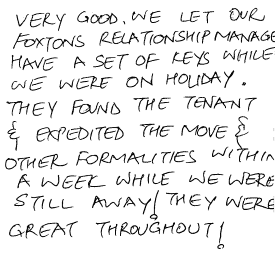 VERY GOOD. WE LET OUR
FOXTONS RELATIONSHIP MANAGE
HAVE A SET OF KEYS WHILE
WE WERE ON HOLIDAY.
THEY FOUND THE TENANT
& EXPEDITED THE MOVE &
OTHER FORMALITIES WITHIN
A WEEK WHILE WE WERE
STILL AWAY! THEY WERE
GREAT THROUGHOUT!